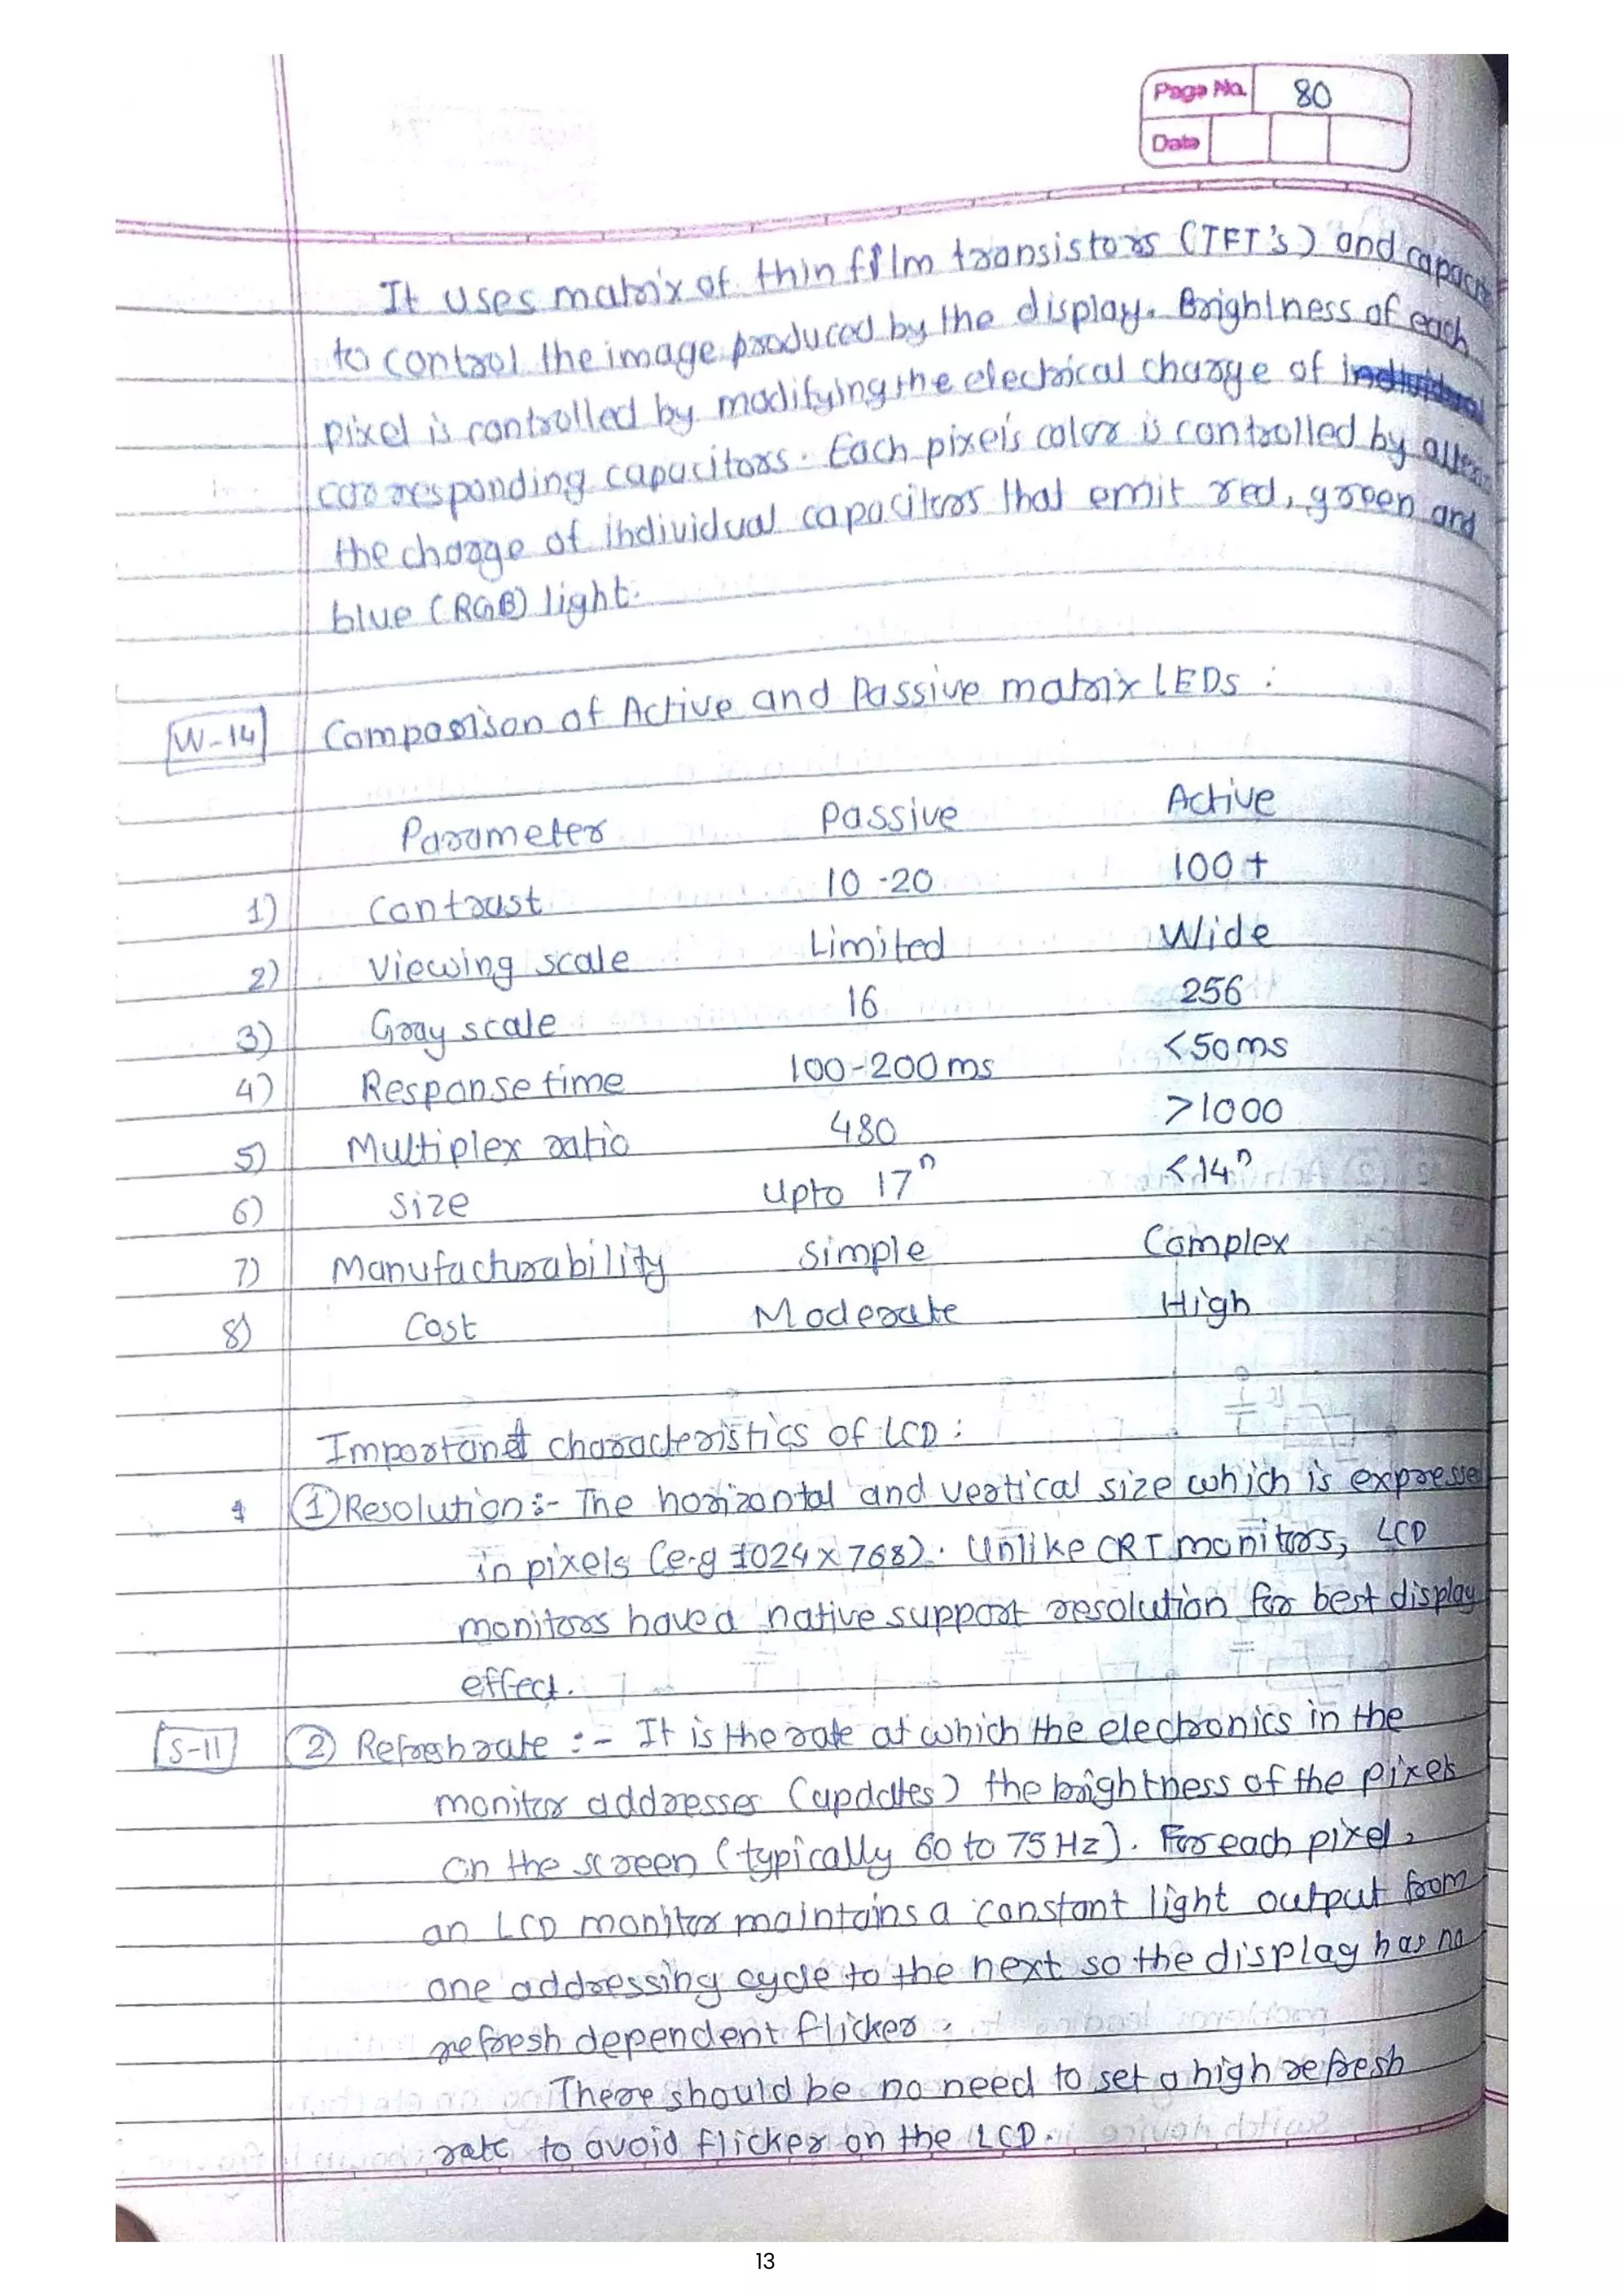 Page No. 80
Date
It uses matrix of thin film transistors (TFT's) and
to control the image produced by the display. Brightness of each
pixel is controlled by modifying the electrical charge of individual
corresponding capacitors. Each pixel's color is controlled by
the charge of individual capacitors that emit red, green and
blue (RGB) light.
W-14 Comparison of Active and Passive matrix LEDs :
Parameter Passive Active
1) Contrast 10-20 100+
2) Viewing scale Limited Wide
3) Gray scale 16 256
4) Response time 100-200ms <50ms
5) Multiplex ratio 480 >1000
6) Size Upto 17" <14"
7) Manufacturability Simple Complex
8) Cost Moderate High
Important characteristics of LCD :
① Resolution :- The horizontal and vertical size which is expresse
in pixels (e.g 1024 x 768). Unlike CRT monitors, LCD
monitors have a native support resolution for best display
effect.
S-11 ② Refresh rate :- It is the rate at which the electronics in the
monitor addresses (updates) the brightness of the pixels
on the screen (typically 60 to 75 Hz). For each pixel,
an LCD monitor maintains a constant light output from
one addressing cycle to the next so the display has no
refresh dependent flicker.
There should be no need to set a high refresh
rate to avoid flicker on the LCD.
13